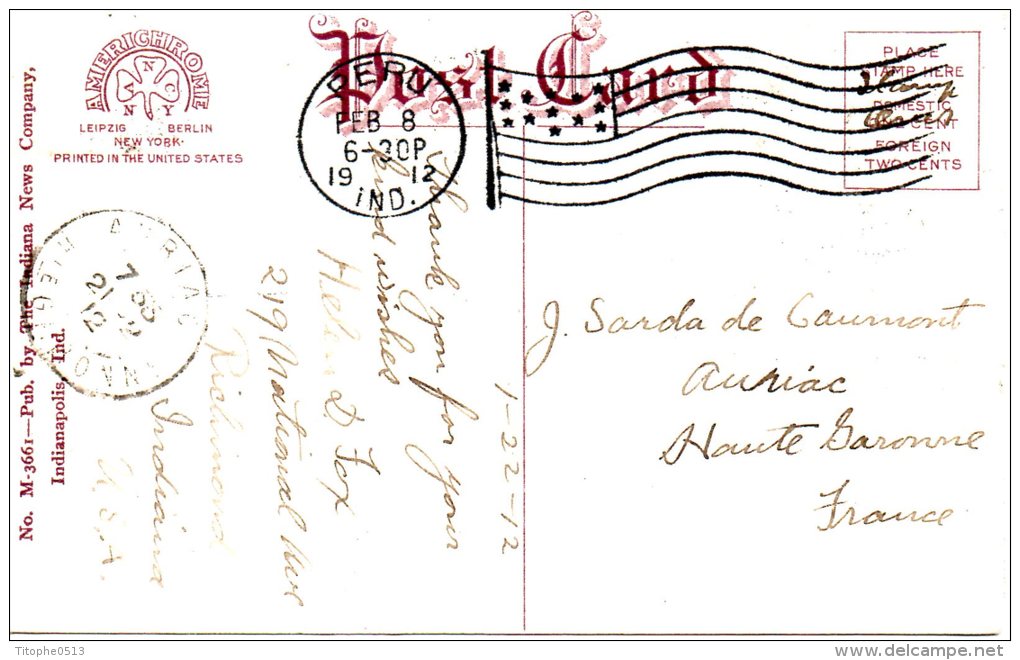 Post Card
AMERICHROME
NANCY
LEIPZIG BERLIN
NEW YORK
PRINTED IN THE UNITED STATES
No. M-3661—Pub. by The Indiana News Company,
Indianapolis, Ind.
PERU
FEB 8
6-30P
19 12
IND.
PLACE
STAMP HERE
DOMESTIC
ONE CENT
FOREIGN
TWO CENTS
Stamp
AURIAC
7 55
21 2
12
1-22-12
Thank you for your
kind wishes
Helen D Fox
219 National Ave
Richmond
Indiana
U.S.A.
J. Sarda de Caumont
Auriac
Haute Garonne
France
Titophe0513
delcampe.net